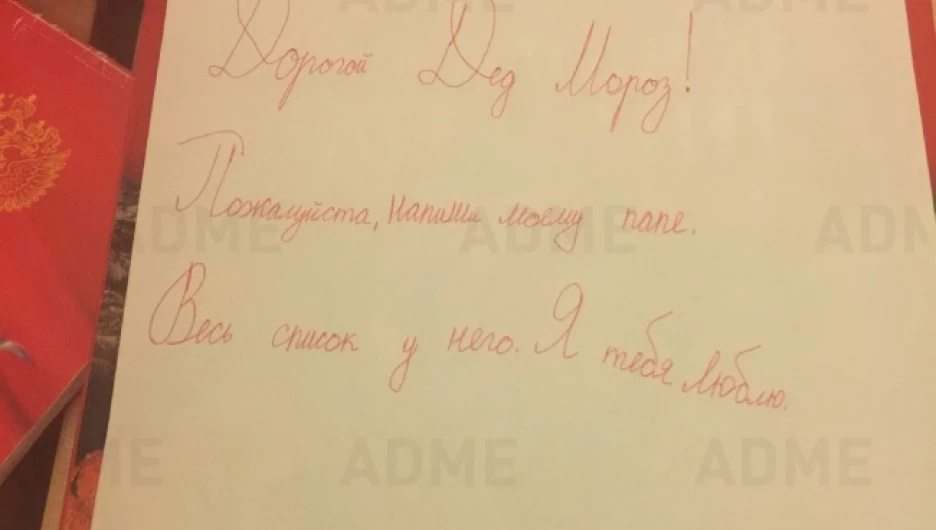 ADME ADME
Дорогой Дед Мороз!
Пожалуйста, напиши моему папе.
ADME ADME ADM
Весь список у него. Я тебя люблю.
ME ADME ADME